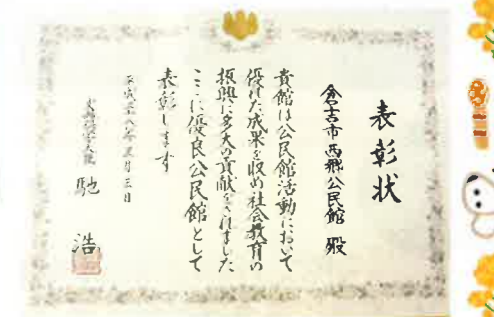 表彰状
倉吉市西郷公民館 殿
貴館は公民館活動において
優れた成果を収め社会教育の
振興に多大の貢献をされました
ここに優良公民館として
表彰します
平成二十八年三月三日
文部科学大臣 馳 浩